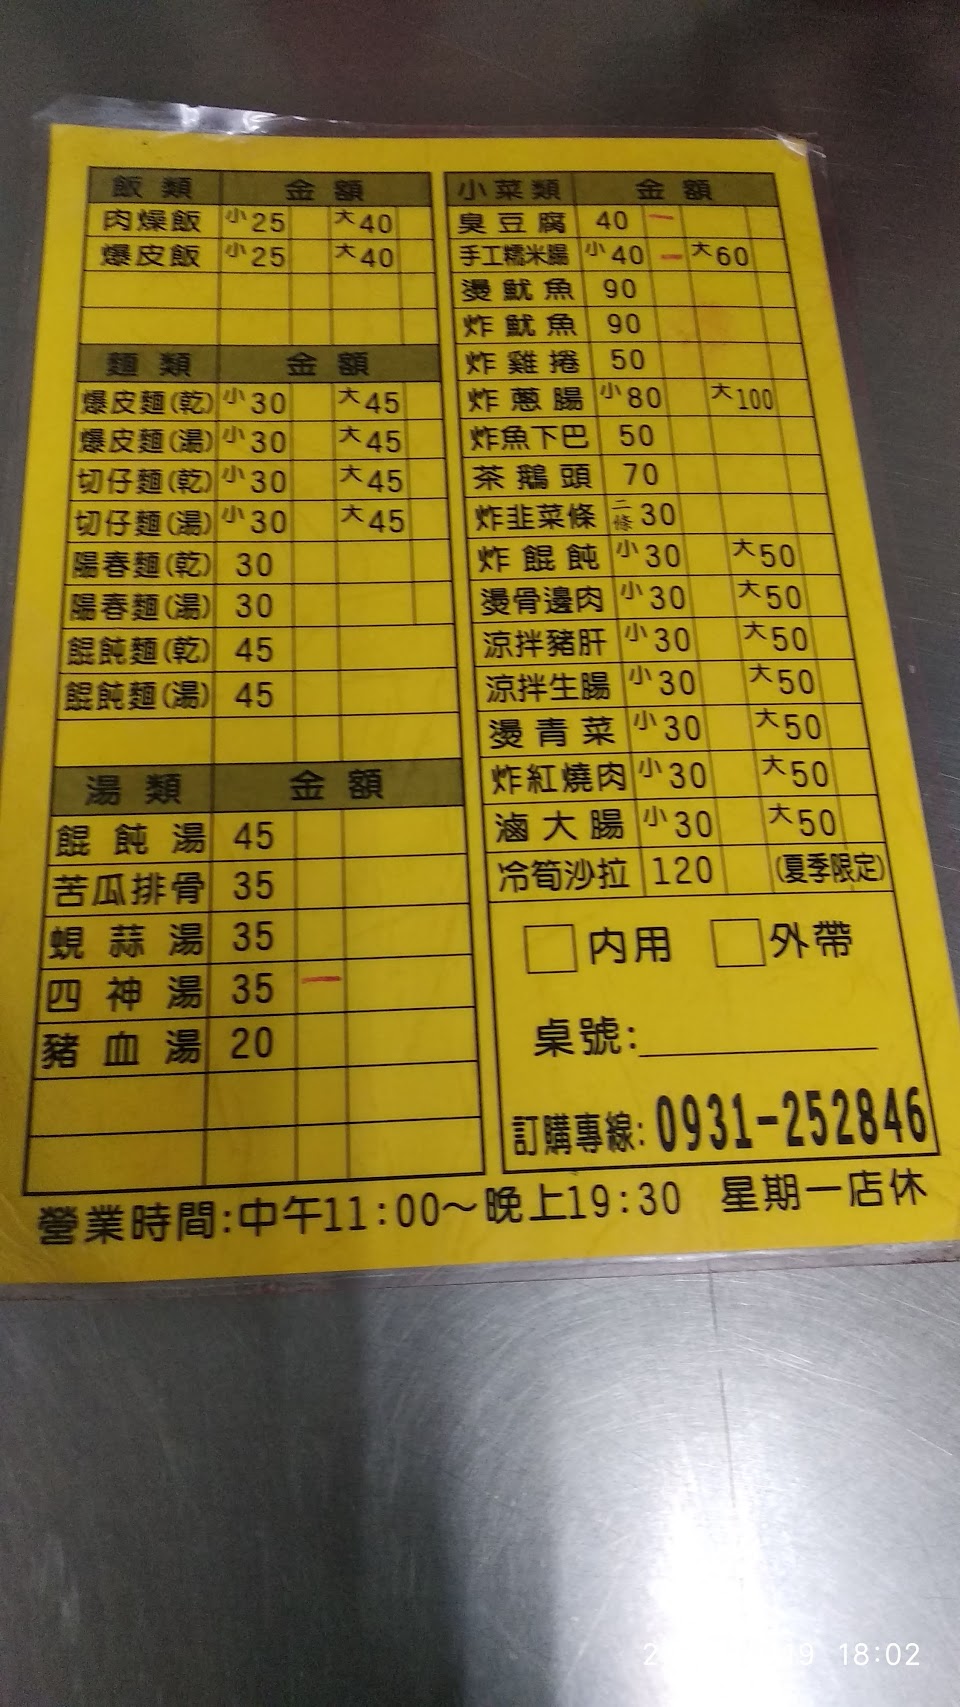 飯類 金額
肉燥飯 小25 大40
爆皮飯 小25 大40
麵類 金額
爆皮麵(乾) 小30 大45
爆皮麵(湯) 小30 大45
切仔麵(乾) 小30 大45
切仔麵(湯) 小30 大45
陽春麵(乾) 30
陽春麵(湯) 30
餛飩麵(乾) 45
餛飩麵(湯) 45
湯類 金額
餛飩湯 45
苦瓜排骨 35
蜆蒜湯 35
四神湯 35 一
豬血湯 20
小菜類 金額
臭豆腐 40 一
手工糯米腸 小40 一 大60
燙魷魚 90
炸魷魚 90
炸雞捲 50
炸蔥腸 小80 大100
炸魚下巴 50
茶鵝頭 70
炸韭菜條 二條30
炸餛飩 小30 大50
燙骨邊肉 小30 大50
涼拌豬肝 小30 大50
涼拌生腸 小30 大50
燙青菜 小30 大50
炸紅燒肉 小30 大50
滷大腸 小30 大50
冷筍沙拉 120 (夏季限定)
內用 外帶
桌號:
訂購專線: 0931-252846
營業時間:中午11:00～晚上19:30 星期一店休
18:02